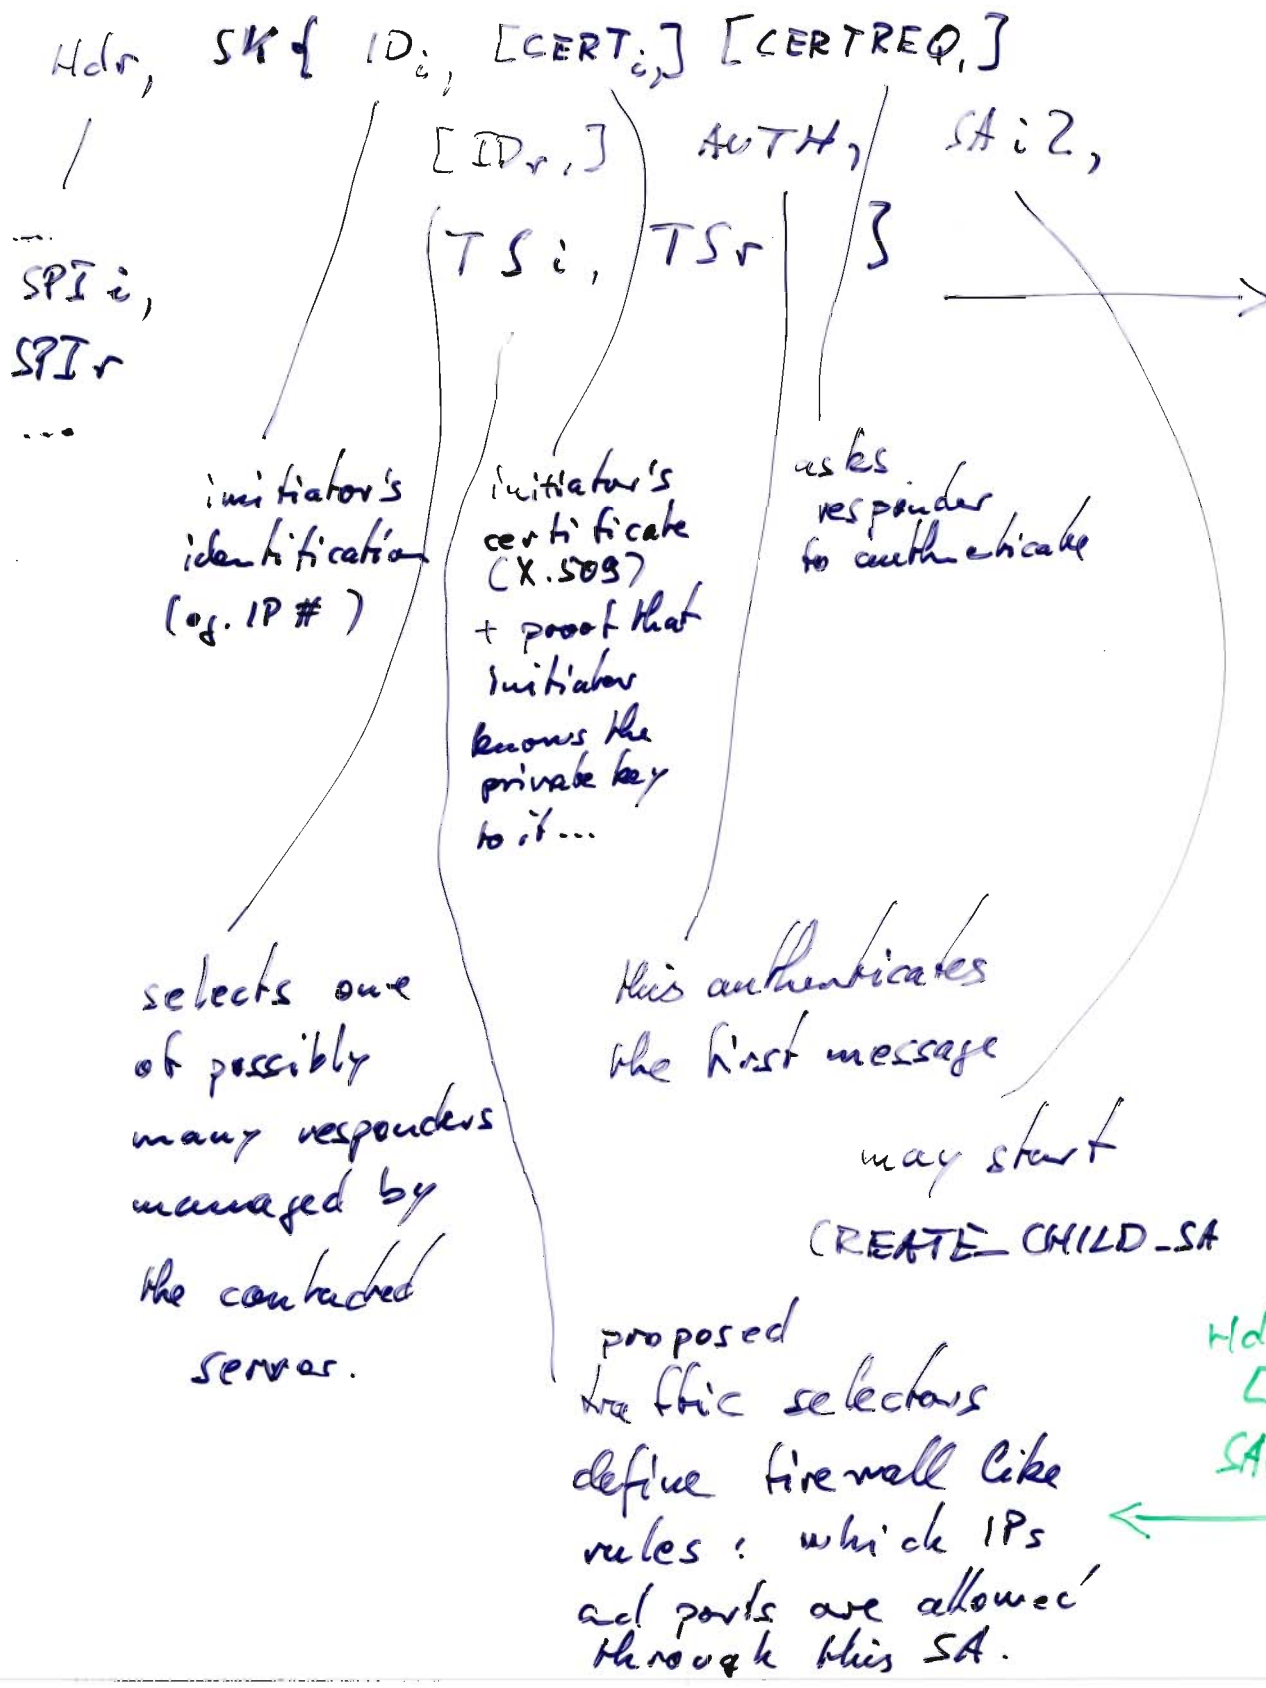 Hdr, SK{ IDi, [CERTi,] [CERTREQ,]
[IDr,] AUTH, SAi2,
TSi, TSr }
...
SPIi,
SPIr
...
initiator's
identification
(eg. IP #)
initiator's
certificate
(X.509)
+ proof that
initiator
knows the
private key
to it...
asks
responder
to authenticate
selects one
of possibly
many responders
managed by
the contacted
server.
this authenticates
the first message
may start
CREATE_CHILD_SA
proposed
traffic selectors
define firewall like
rules: which IPs
and ports are allowed
through this SA.
Hd
[
SA